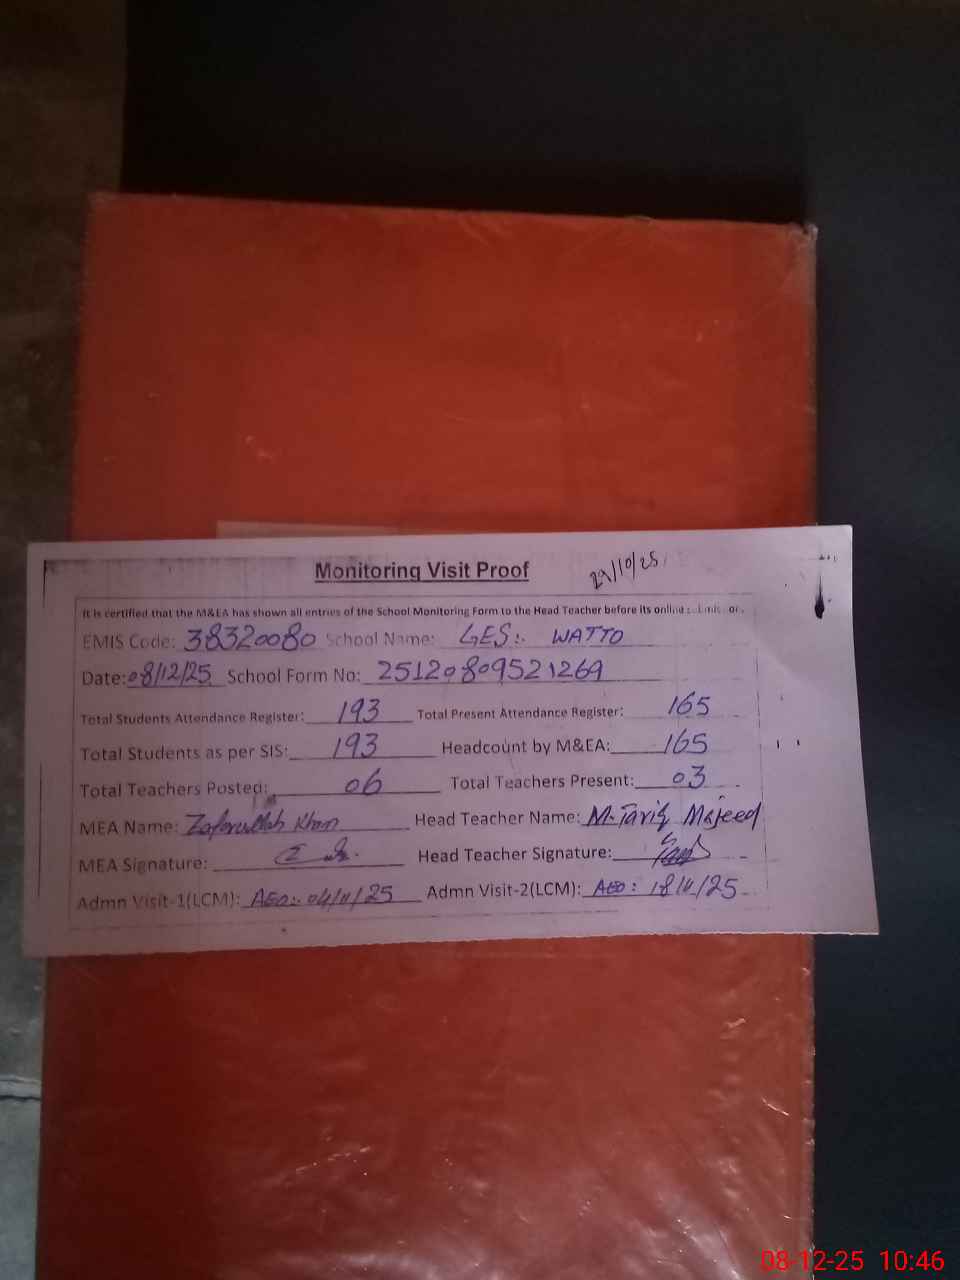 Monitoring Visit Proof
29/10/25
It is certified that the M&EA has shown all entries of the School Monitoring Form to the Head Teacher before its online
EMIS Code: 38320080 School Name: GES:. WATTO
Date: 08/12/25 School Form No: 25120809521269
Total Students Attendance Register: 193 Total Present Attendance Register: 165
Total Students as per SIS: 193 Headcount by M&EA: 165
Total Teachers Posted: 06 Total Teachers Present: 03
MEA Name: Zafarullah Khan Head Teacher Name: M.Tariq Majeed
MEA Signature: Head Teacher Signature:
Admn Visit-1(LCM): AEO:. 04/11/25 Admn Visit-2(LCM): AEO: 18/11/25
08-12-25 10:46